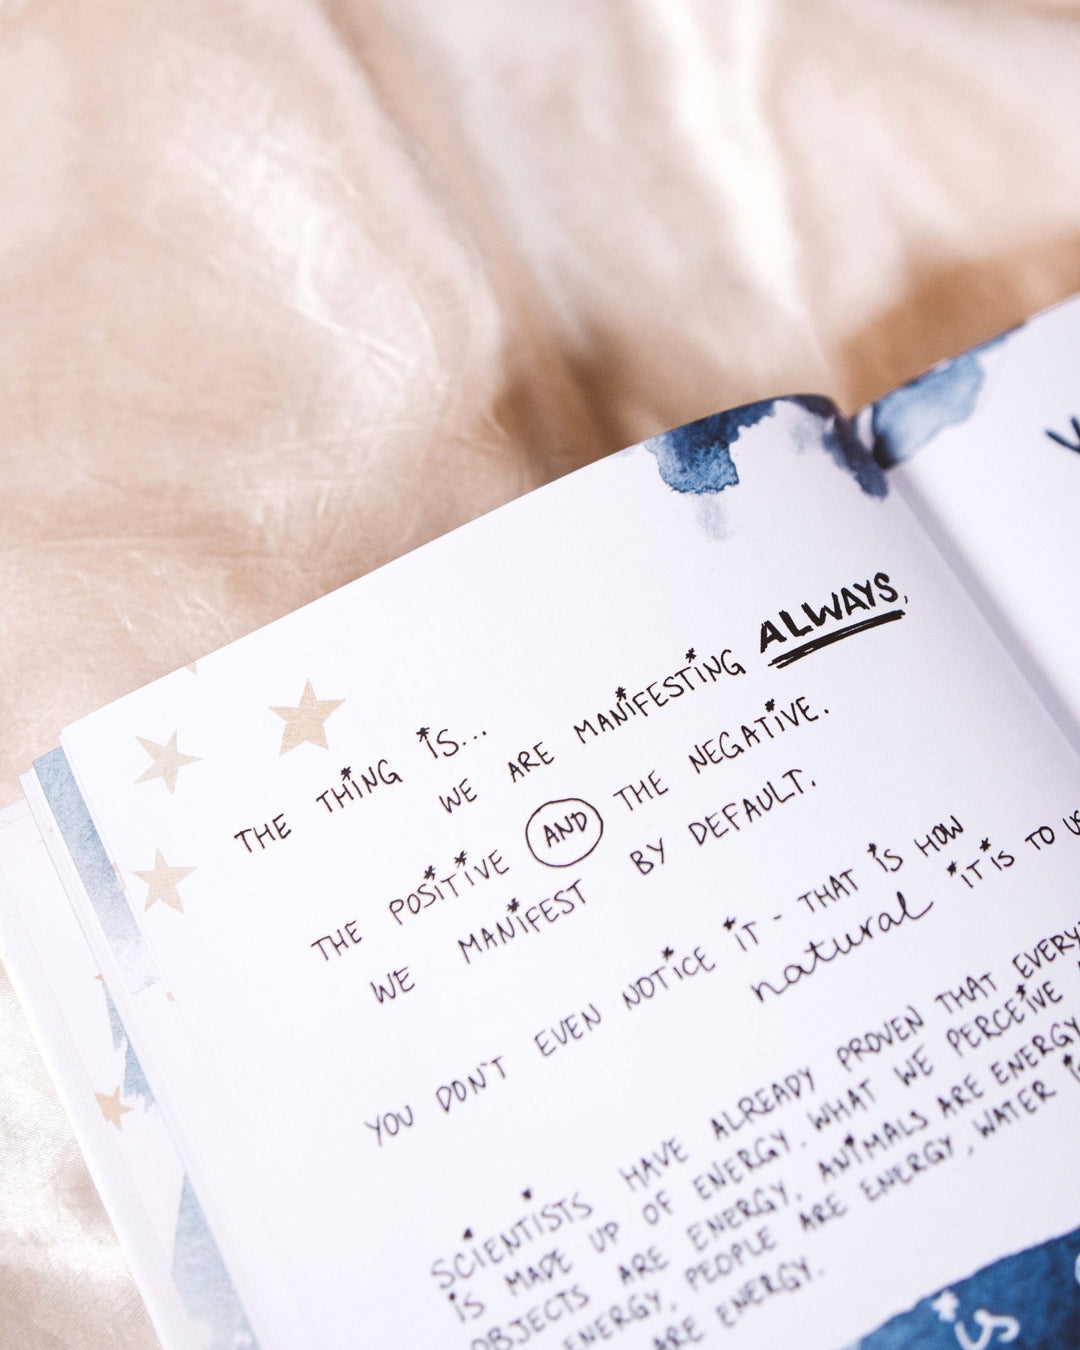 THE THING IS...
WE ARE MANIFESTING ALWAYS,
THE POSITIVE AND THE NEGATIVE.
WE MANIFEST BY DEFAULT.
YOU DON'T EVEN NOTICE IT - THAT IS HOW
natural IT IS TO US
SCIENTISTS HAVE ALREADY PROVEN THAT
IS MADE UP OF ENERGY. WHAT WE PERCEIVE
OBJECTS ARE ENERGY. ANIMALS ARE ENERGY
ENERGY, PEOPLE ARE ENERGY, WATER
ARE ENERGY.
is